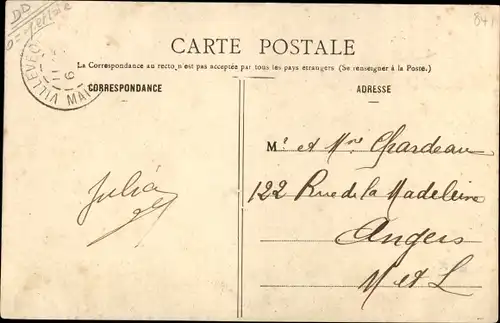 DD
841
CARTE POSTALE
La Correspondance au recto n'est pas acceptée par tous les pays étrangers (Se renseigner à la Poste.)
CORRESPONDANCE
ADRESSE
VILLEVÊQ
11
6
Julia
Mr et Mme Chardeau
122 Rue de la Madeleine
Angers
M et L